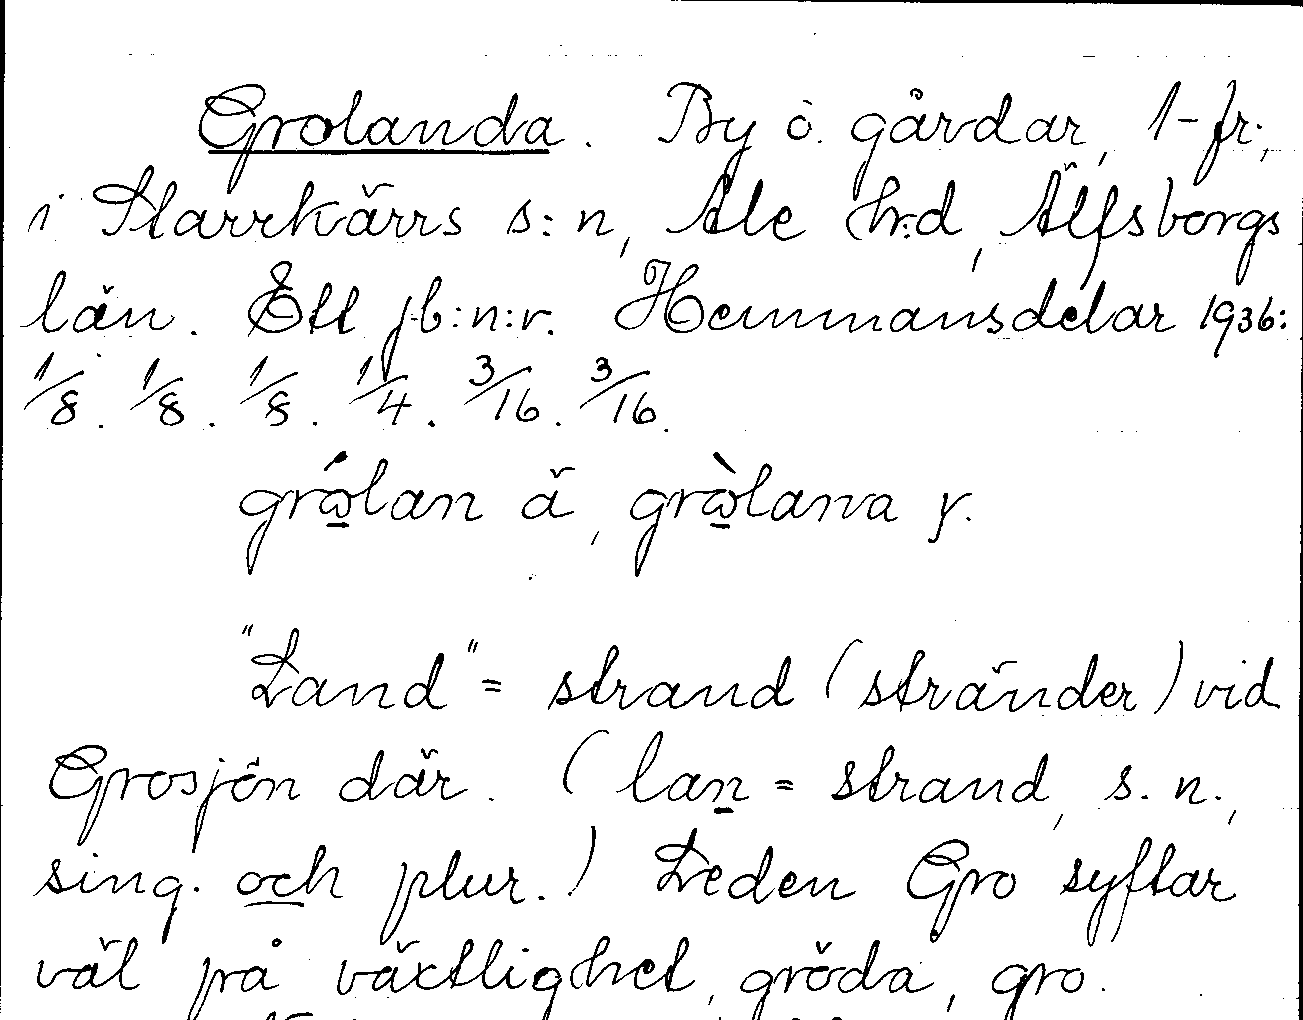 Grolanda. By o. gårdar, 1-fr.,
i Starrkärrs s:n, Ale h:d, Älfsborgs
län. Ett jb:n:r. Hemmansdelar 1936:
1/8. 1/8. 1/8. 1/4. 3/16. 3/16.
grólan ä, gròlana y.
"Land" = strand (stränder) vid
Grosjön där. (lan = strand, s. n.,
sing. och plur.) Leden Gro syftar
väl på växtlighet, gröda, gro.